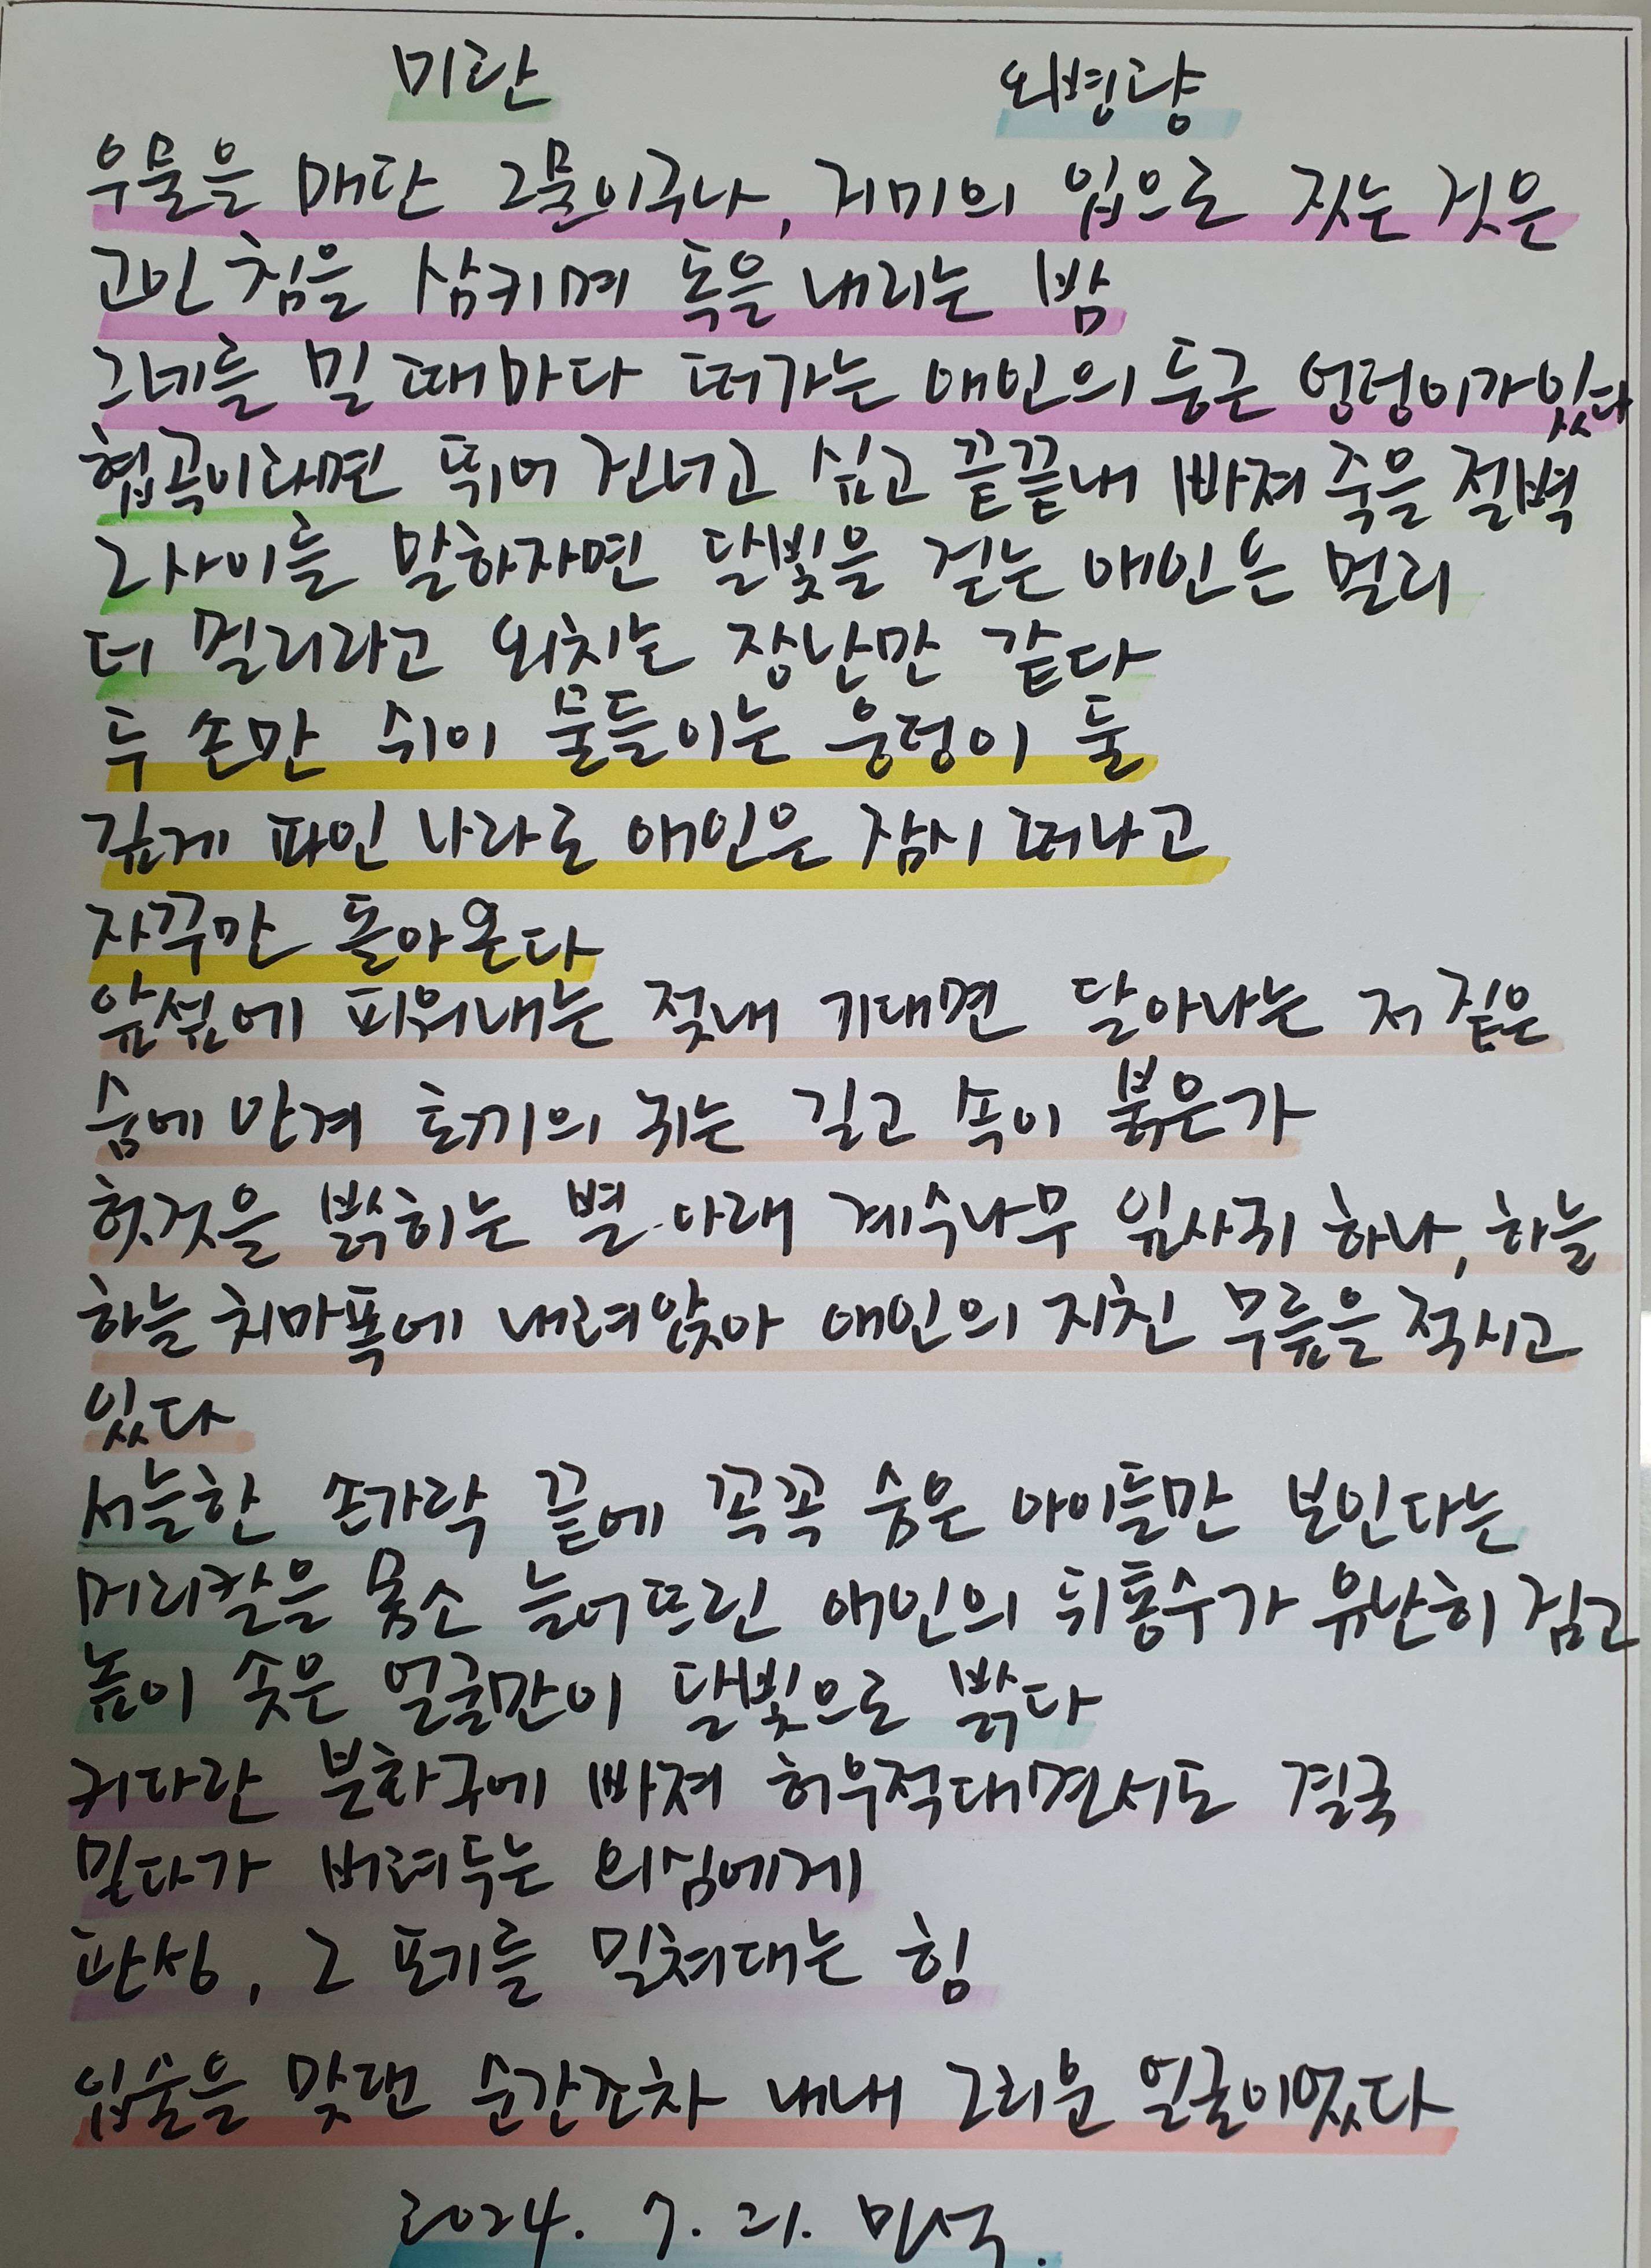 미란 외병량
우물을 매단 그물이구나, 거미의 입으로 짓는 것은
고인 침을 삼키며 독을 내리는 밤
그네를 밀 때마다 떠가는 애인의 둥근 엉덩이가 있다
협곡이래면 뛰어 건너고 싶고 끝끝내 빠져 죽을 절벽
그 사이를 말하자면 달빛을 걷는 애인은 멀리
더 멀리라고 외치는 장난만 같다
두 손만 쉬이 물들이는 웅덩이 둘
깊게 파인 나라로 애인은 잠시 떠나고
자꾸만 돌아온다
앞섶에 피워내는 젖내 기대면 달아나는 저 짙은
숨에 안겨 토끼의 귀는 길고 속이 붉은가
헛것을 밝히는 별 아래 계수나무 잎사귀 하나, 하늘
하늘 치마폭에 내려앉아 애인의 지친 무릎을 적시고
있다
서늘한 손가락 끝에 꼭꼭 숨은 아이들만 보인다는
머리칼을 몸소 늘어뜨린 애인의 뒤통수가 유난히 검고
높이 솟은 얼굴만이 달빛으로 밝다
커다란 분화구에 빠져 허우적대면서도 결국
밀다가 버려두는 의심에게
관성, 그 포기를 밀쳐대는 힘
입술을 맞댄 순간조차 내내 그리운 얼굴이었다
2024. 7. 21. 민석.